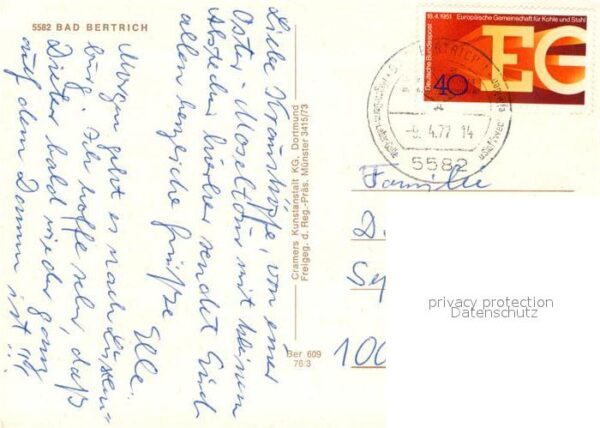 5582 BAD BERTRICH
Liebe Kramshöffe, von einer
Oster-Moseltour mit kleinem
Abstecher hierher sendet Euch
allen herzliche Grüße Elle.
Morgen geht es nach
burg. Ich hoffe sehr, daß
Dieter bald wieder ganz
auf dem Damm ist!!!
Cramers Kunstanstalt KG, Dortmund
Freigeg. d. Reg.-Präs. Münster 3415/73
Ber 609
76/3
18.4.1951 Europäische Gemeinschaft für Kohle und Stahl
Deutsche Bundespost
40
EG
BERTRICH
4.77 14
5582
Familie
D.
100
privacy protection
Datenschutz